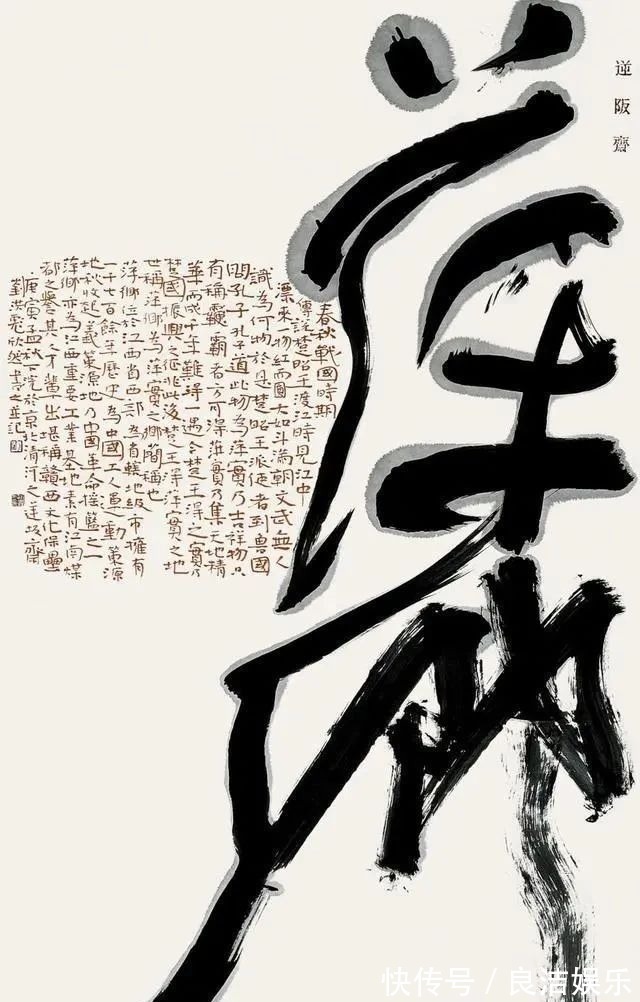 逆阪齋
萍鄉
春秋戰國時期
傳說楚昭王渡江時見江中
漂來一物紅而圓大如斗滿朝文武無人
識為何物於是楚昭王派使者到魯國
問孔子孔子道此物為萍實乃吉祥物只
有稱靈霸者方可得萍實乃集天地精
華而成千年難得一遇今楚王得之實乃
楚國振興之征兆此後楚王得萍實之地
世稱萍鄉為萍實之鄉簡稱也
萍鄉位於江西省西部為省轄地級市擁有
一千七百餘年歷史為中國工人運動策源
地秋收起義策源地乃中國革命搖籃之一
萍鄉亦為江西重要工業基地素有江南煤
都之譽其人才輩出堪稱贛西文化保壘
庚寅孟秋下浣於京北清河之逆阪齋
劉洪彪欣然書之並記
快传号 / 良洁娱乐